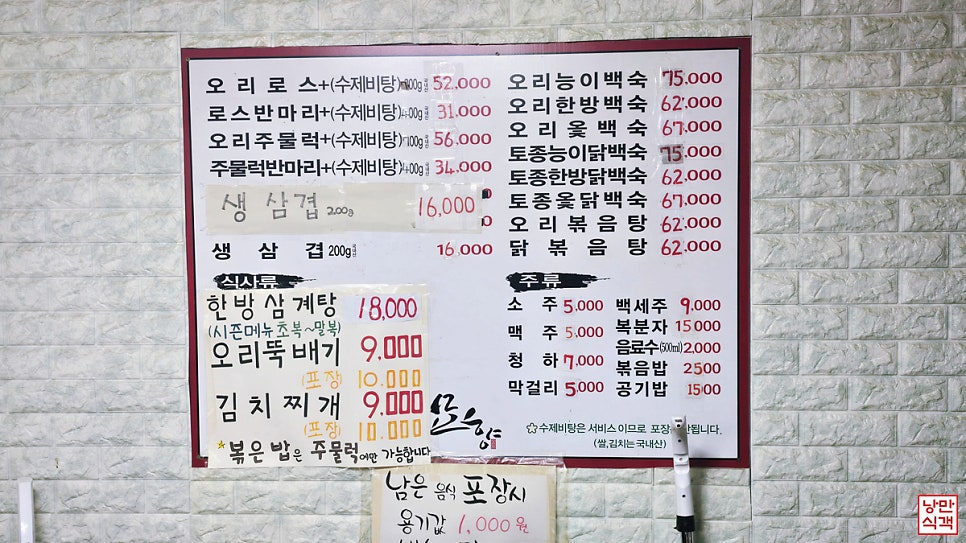 오리로스+(수제비탕) 52,000
로스반마리+(수제비탕) 31,000
오리주물럭+(수제비탕) 56,000
주물럭반마리+(수제비탕) 34,000
생 삼겹 200g 16,000
생 삼 겹 200g 16,000
식사류
한방삼계탕 18,000
(시즌메뉴 초복~말복)
오리뚝배기 9.000
(포장) 10.000
김치찌개 9.000
(포장) 10.000
*볶은밥은 주물럭에만 가능합니다
오리능이백숙 75,000
오리한방백숙 62,000
오리옻백숙 67,000
토종능이닭백숙 75,000
토종한방닭백숙 62,000
토종옻닭백숙 67,000
오리볶음탕 62,000
닭볶음탕 62,000
주류
소주 5,000
맥주 5,000
청하 7,000
막걸리 5,000
백세주 9,000
복분자 15000
음료수(500ml) 2,000
볶음밥 2500
공기밥 1500
수제비탕은 서비스이므로 포장 됩니다.
(쌀,김치는 국내산)
남은 음식 포장시
용기값 1,000원
낭만
식객